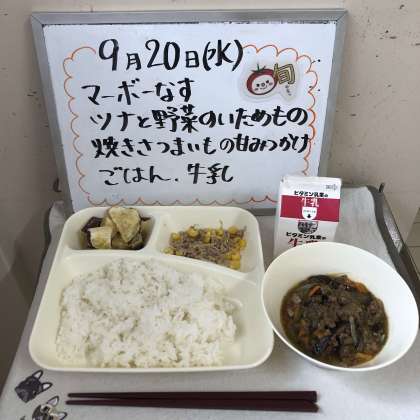 9月20日(水)
旬
マーボーなす
ツナと野菜のいためもの
焼きさつまいもの甘みつかけ
ごはん、牛乳
ビタミン乳業の
牛乳
ビタミン乳業の
牛乳